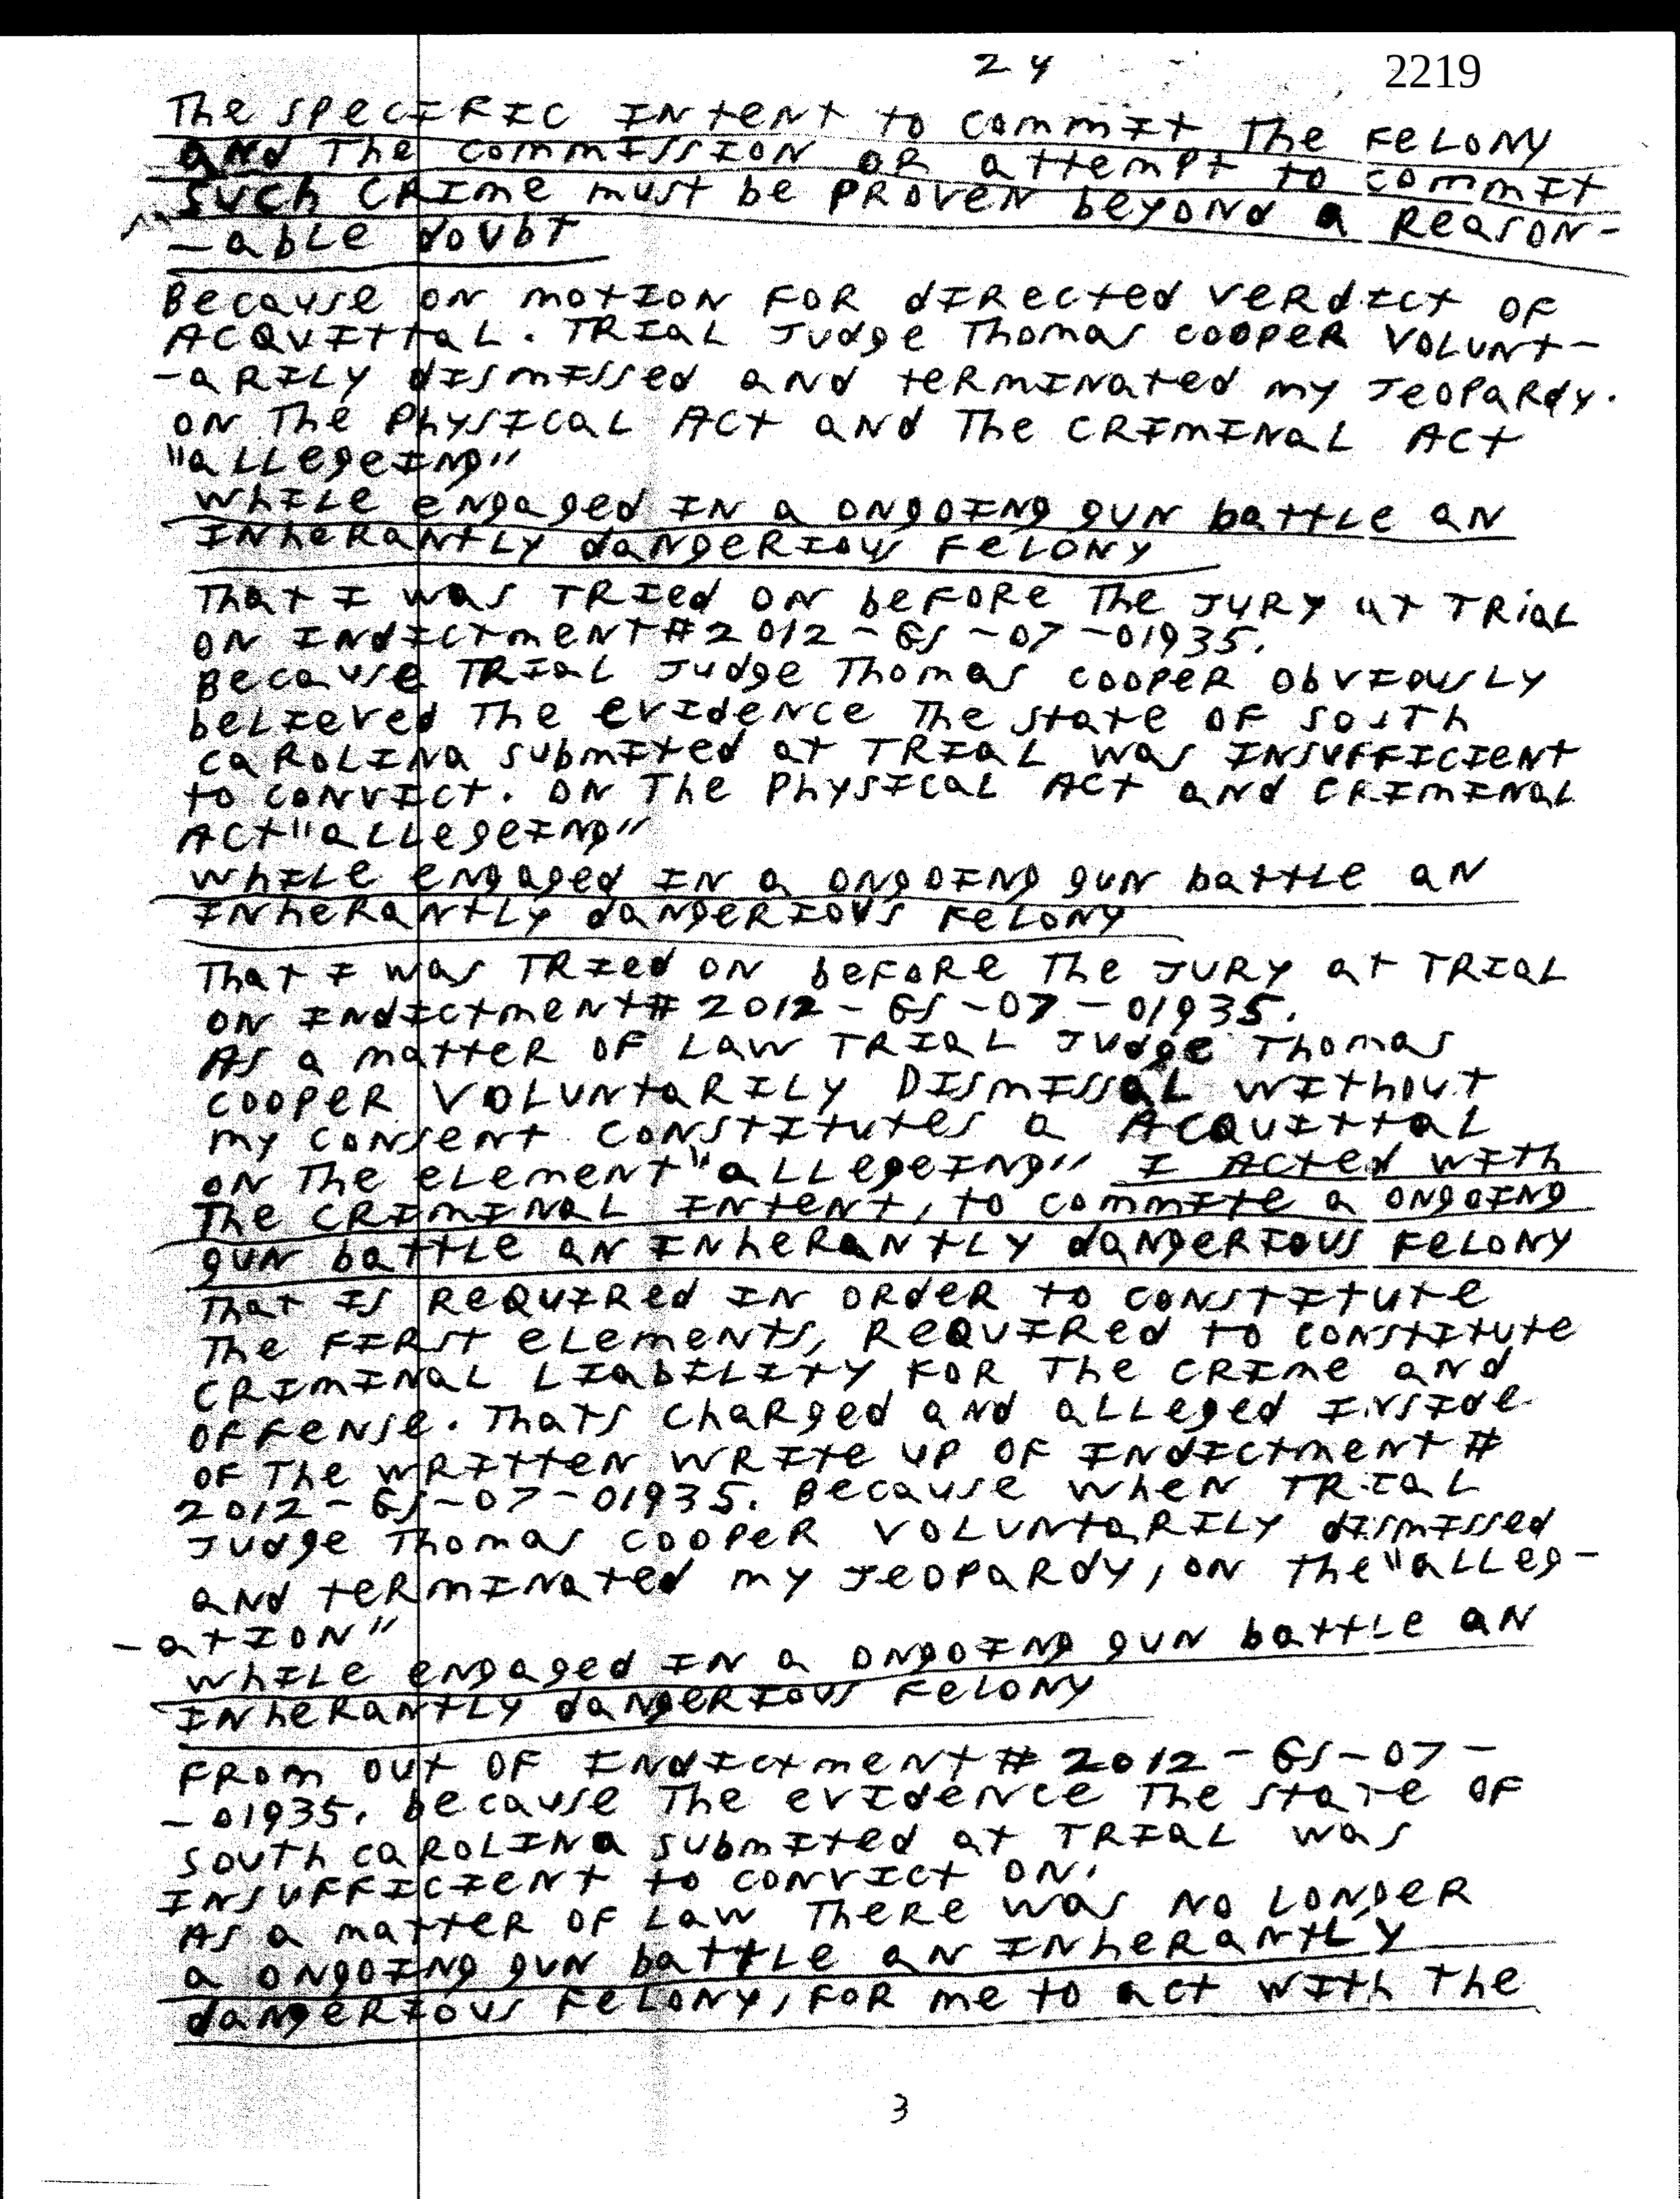 24 2219
The specific intent to commit the felony
and the commission or attempt to commit
such crime must be proven beyond a reason-
-able doubt
Because on motion for directed verdict of
acquittal. Trial Judge Thomas Cooper volunt-
-arily dismissed and terminated my jeopardy.
on the physical act and the criminal act
"allegeing"
while engaged in a ongoing gun battle an
inherantly dangerious felony
That I was tried on before the jury at trial
on indictment # 2012-GS-07-01935.
Because trial Judge Thomas Cooper obviously
believed the evidence the state of South
Carolina submited at trial was insufficient
to convict. on the physical act and criminal
act "allegeing"
while engaged in a ongoing gun battle an
inherantly dangerious felony
That I was tried on before the jury at trial
on indictment # 2012-GS-07-01935.
As a matter of law trial Judge Thomas
Cooper voluntarily dismissal without
my consent constitutes a acquittal
on the element "allegeing" I acted with
the criminal intent, to commite a ongoing
gun battle an inherantly dangerious felony
That is required in order to constitute
the first elements, required to constitute
criminal liability for the crime and
offense. Thats charged and alleged inside
of the written write up of indictment #
2012-GS-07-01935. Because when trial
Judge Thomas Cooper voluntarily dismissed
and terminated my jeopardy, on the "alleg-
-ation"
while engaged in a ongoing gun battle an
inherantly dangerious felony
From out of indictment # 2012-GS-07-
-01935. because the evidence the state of
South Carolina submited at trial was
insufficient to convict on.
As a matter of law there was no longer
a ongoing gun battle an inherantly
dangerious felony, for me to act with the
3